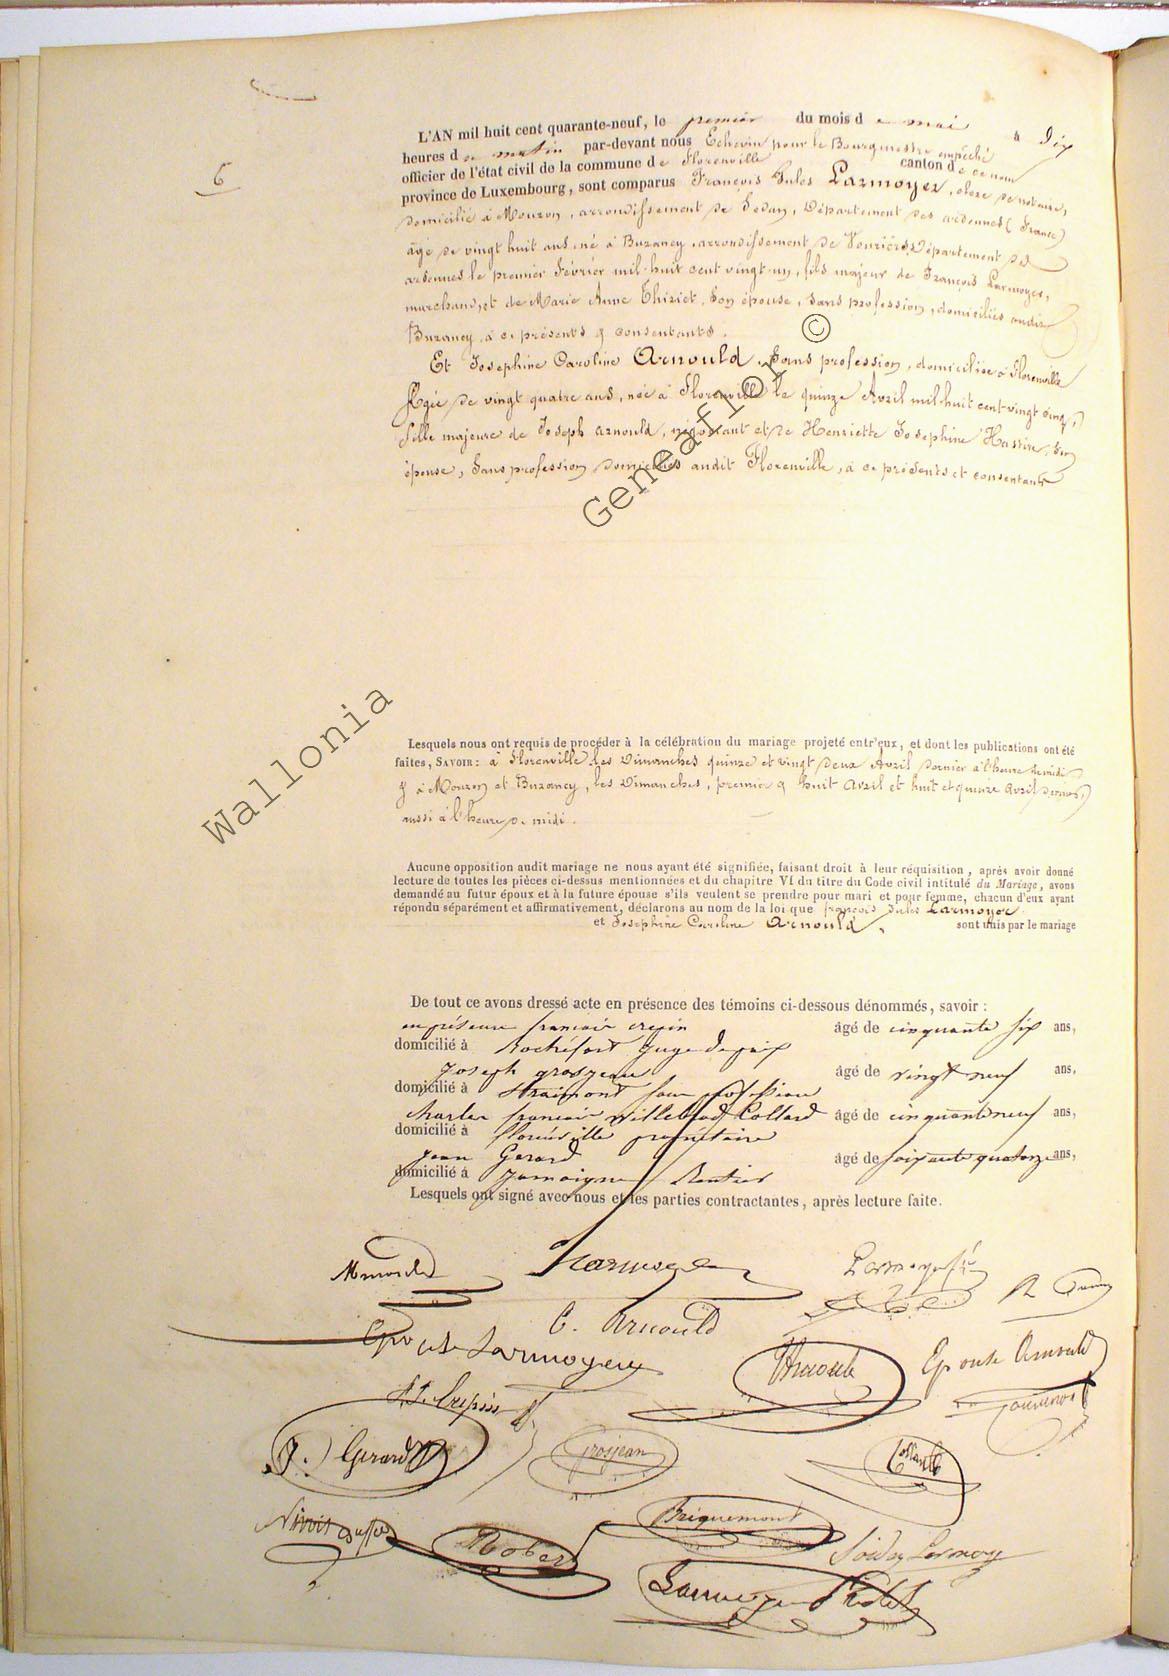 6
L'AN mil huit cent quarante-neuf, le premier du mois de mai à dix
heures du matin par-devant nous Echevin pour le Bourgmestre empêché
officier de l'état civil de la commune de Florenville canton de ce nom
province de Luxembourg, sont comparus François Jules Larmoyer, clerc de notaire,
domicilié à Mouzon, arrondissement de Sedan, Département des ardennes (France)
âgé de vingt huit ans, né à Buzancy, arrondissement de Vouziers, Département des
ardennes le premier Février mil-huit cent vingt-un, fils majeur de François Larmoyer,
marchand, et de Marie Anne Thiriet, son épouse, sans profession, domiciliés audit
Buzancy, à ce présents & consentants.
Et Josephine Caroline Arnould, Sans profession, domiciliée à Florenville
Agée de vingt quatre ans, née à Florenville le quinze Avril mil-huit cent-vingt cinq,
fille majeure de Joseph Arnould, négociant et de Henriette Josephine, son
épouse, Sans profession domiciliés audit Florenville, à ce présents et consentants
Lesquels nous ont requis de procéder à la célébration du mariage projeté entr'eux, et dont les publications ont été
faites, SAVOIR: à Florenville, les Dimanches quinze et vingt deux Avril dernier à l'heure de midi
& à Mouzon et Buzancy, les Dimanches, premier & huit Avril et huit et quinze avril dernier,
aussi à l'heure de midi.
Aucune opposition audit mariage ne nous ayant été signifiée, faisant droit à leur réquisition, après avoir donné
lecture de toutes les pièces ci-dessus mentionnées et du chapitre VI du titre du Code civil intitulé du Mariage, avons
demandé au futur époux et à la future épouse s'ils veulent se prendre pour mari et pour femme, chacun d'eux ayant
répondu séparément et affirmativement, déclarons au nom de la loi que françois Jules Larmoyer
et Josephine Caroline Arnould, sont unis par le mariage
De tout ce avons dressé acte en présence des témoins ci-dessous dénommés, savoir :
en présence françois crepin âgé de cinquante six ans,
domicilié à Rochefort juge de paix
Joseph grosjean âgé de vingt neuf ans,
domicilié à Straimont sans profession
charles françois Willebrod Collard âgé de cinquante neuf ans,
domicilié à florenville propriétaire
jean Gerard âgé de soixante quatorze ans,
domicilié à Jamoigne Rentier
Lesquels ont signé avec nous et les parties contractantes, après lecture faite.
C. Arnould
Epouse Larmoyer
Epouse Arnould
Crepin
J. Gerard
Grosjean
Collard
Briquemont
Wallonia
Geneaflor ©